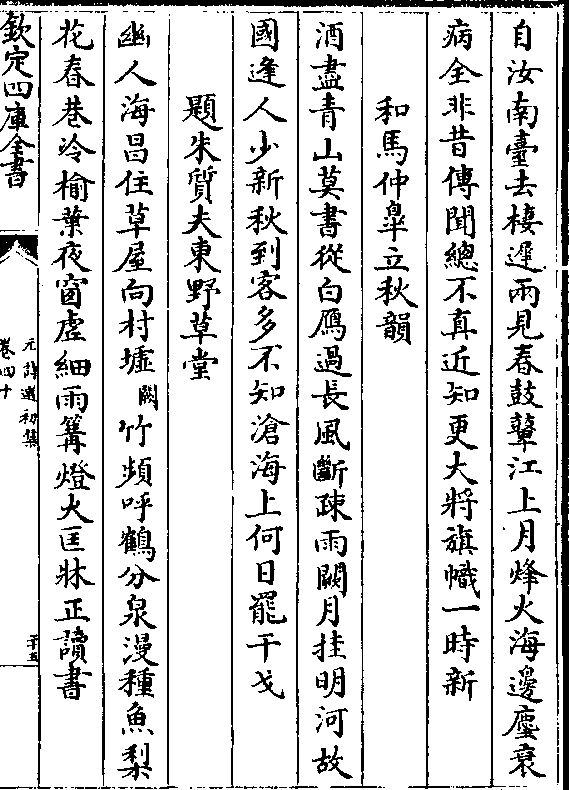 自汝南臺去棲遲兩見春鼓鼙江上月烽火海邊塵衰
病全非昔傳聞總不真近知更大將旗幟一時新
和馬仲臯立秋韻
酒盡青山莫書從白鴈過長風斷疎雨闕月挂明河故
國逢人少新秋到客多不知滄海上何日罷干戈
題朱質夫東野草堂
幽人海昌住草屋向村墟闕竹頻呼鶴分泉漫種魚梨
花春巷冷榆葉夜窗虛細雨篝燈火匡牀正讀書
欽定四庫全書
元詩選初集
卷四十